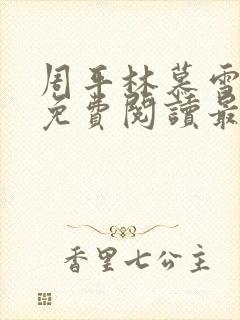 周平林慕雪
免費閱讀最
香里七公主